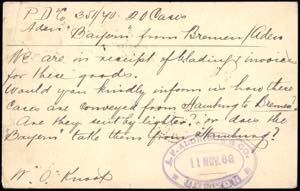 P D & Co 351/70. 20 Cases
Aden "Bayern" from Bremen/Aden
We are in receipt of B/lading & invoice
for these goods.
Would you kindly inform us how these
Cases are conveyed from Hamburg to Bremen?
Are they sent by lighter? or does the
"Bayern" take them from Hamburg?
W. O. Knoop
& CO.
11 NOV. 89